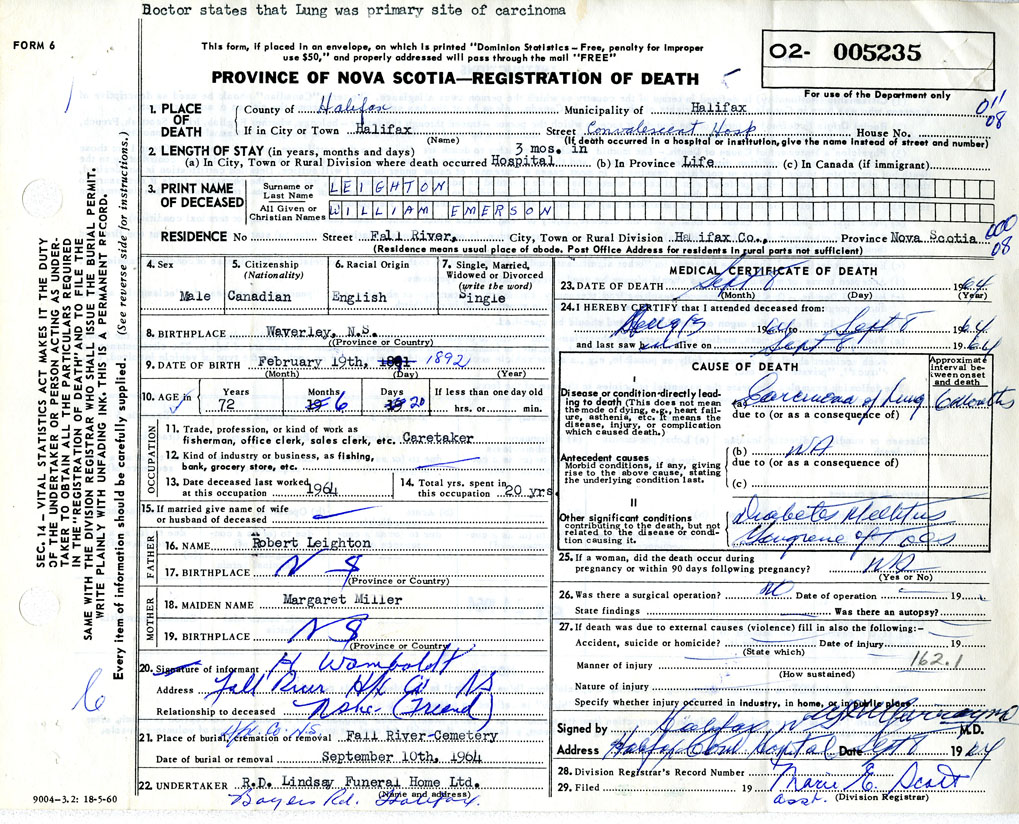 Doctor states that Lung was primary site of carcinoma
FORM 6
This form, if placed in an envelope, on which is printed "Dominion Statistics – Free, penalty for improper
use $50," and properly addressed will pass through the mail "FREE"
PROVINCE OF NOVA SCOTIA—REGISTRATION OF DEATH
02- 005235
For use of the Department only
011
08
1. PLACE OF DEATH
County of Halifax Municipality of Halifax
If in City or Town Halifax Street Convalescent Hosp House No.
(Name) (If death occurred in a hospital or institution, give the name instead of street and number)
2. LENGTH OF STAY (in years, months and days) 3 mos. in
(a) In City, Town or Rural Division where death occurred Hospital (b) In Province Life (c) In Canada (if immigrant)
3. PRINT NAME OF DECEASED
Surname or Last Name LEIGHTON
All Given or Christian Names WILLIAM EMERSON
RESIDENCE No Street Fall River, City, Town or Rural Division Halifax Co., Province Nova Scotia
(Residence means usual place of abode. Post Office Address for residents in rural parts not sufficient)
000
08
4. Sex
Male
5. Citizenship
(Nationality)
Canadian
6. Racial Origin
English
7. Single, Married,
Widowed or Divorced
(write the word)
Single
8. BIRTHPLACE Waverley, N.S.
(Province or Country)
9. DATE OF BIRTH February 19th, 1891 1892
(Month) (Day) (Year)
10. AGE in
Years 72
Months 6
Days 20
If less than one day old
hrs. or min.
OCCUPATION
11. Trade, profession, or kind of work as
fisherman, office clerk, sales clerk, etc. Caretaker
12. Kind of industry or business, as fishing,
bank, grocery store, etc.
13. Date deceased last worked
at this occupation 1964
14. Total yrs. spent in
this occupation 20 yrs.
15. If married give name of wife
or husband of deceased
FATHER
16. NAME Robert Leighton
17. BIRTHPLACE N S
(Province or Country)
MOTHER
18. MAIDEN NAME Margaret Miller
19. BIRTHPLACE N S
(Province or Country)
20. Signature of informant H Wamboldt
Address Fall River Hfx Co NS
Relationship to deceased None. (Friend)
21. Place of burial, cremation or removal Fall River Cemetery
Hfx. Co. N.S.
Date of burial or removal September 10th, 1964
22. UNDERTAKER R.D. Lindsay Funeral Home Ltd.
(Name and address)
Bayers Rd. Halifax.
9004-3.2: 18-5-60
MEDICAL CERTIFICATE OF DEATH
23. DATE OF DEATH Sept 8 1964
(Month) (Day) (Year)
24. I HEREBY CERTIFY that I attended deceased from:
1964 to Sept 8 1964
and last saw him alive on Sept 8 1964
CAUSE OF DEATH
Approximate
interval be-
tween onset
and death
I
Disease or condition directly lead-
ing to death (This does not mean
the mode of dying, e.g., heart fail-
ure, asthenia, etc. It means the
disease, injury, or complication
which caused death.)
(a) Carcinoma of Lung 6 months
due to (or as a consequence of)
Antecedent causes
Morbid conditions, if any, giving
rise to the above cause, stating
the underlying condition last.
(b) NA
due to (or as a consequence of)
(c)
II
Other significant conditions
contributing to the death, but not
related to the disease or condi-
tion causing it.
Diabetes Mellitus
Gangrene of Toes
25. If a woman, did the death occur during
pregnancy or within 90 days following pregnancy? NA
(Yes or No)
26. Was there a surgical operation? NO Date of operation 19
State findings Was there an autopsy?
27. If death was due to external causes (violence) fill in also the following:–
Accident, suicide or homicide? Date of injury 19
(State which)
Manner of injury 162.1
(How sustained)
Nature of injury
Specify whether injury occurred in industry, in home, or in public place
Signed by M.D.
Address Halifax Conv Hospital Date Sept 8 1964
28. Division Registrar's Record Number
29. Filed 19 Marie E. Scott
asst. (Division Registrar)
SEC. 14 – VITAL STATISTICS ACT MAKES IT THE DUTY
OF THE UNDERTAKER OR PERSON ACTING AS UNDER-
TAKER TO OBTAIN ALL THE PARTICULARS REQUIRED
IN THE "REGISTRATION OF DEATH" AND TO FILE THE
SAME WITH THE DIVISION REGISTRAR WHO SHALL ISSUE THE BURIAL PERMIT.
WRITE PLAINLY WITH UNFADING INK. THIS IS A PERMANENT RECORD.
Every item of information should be carefully supplied. (See reverse side for instructions.)